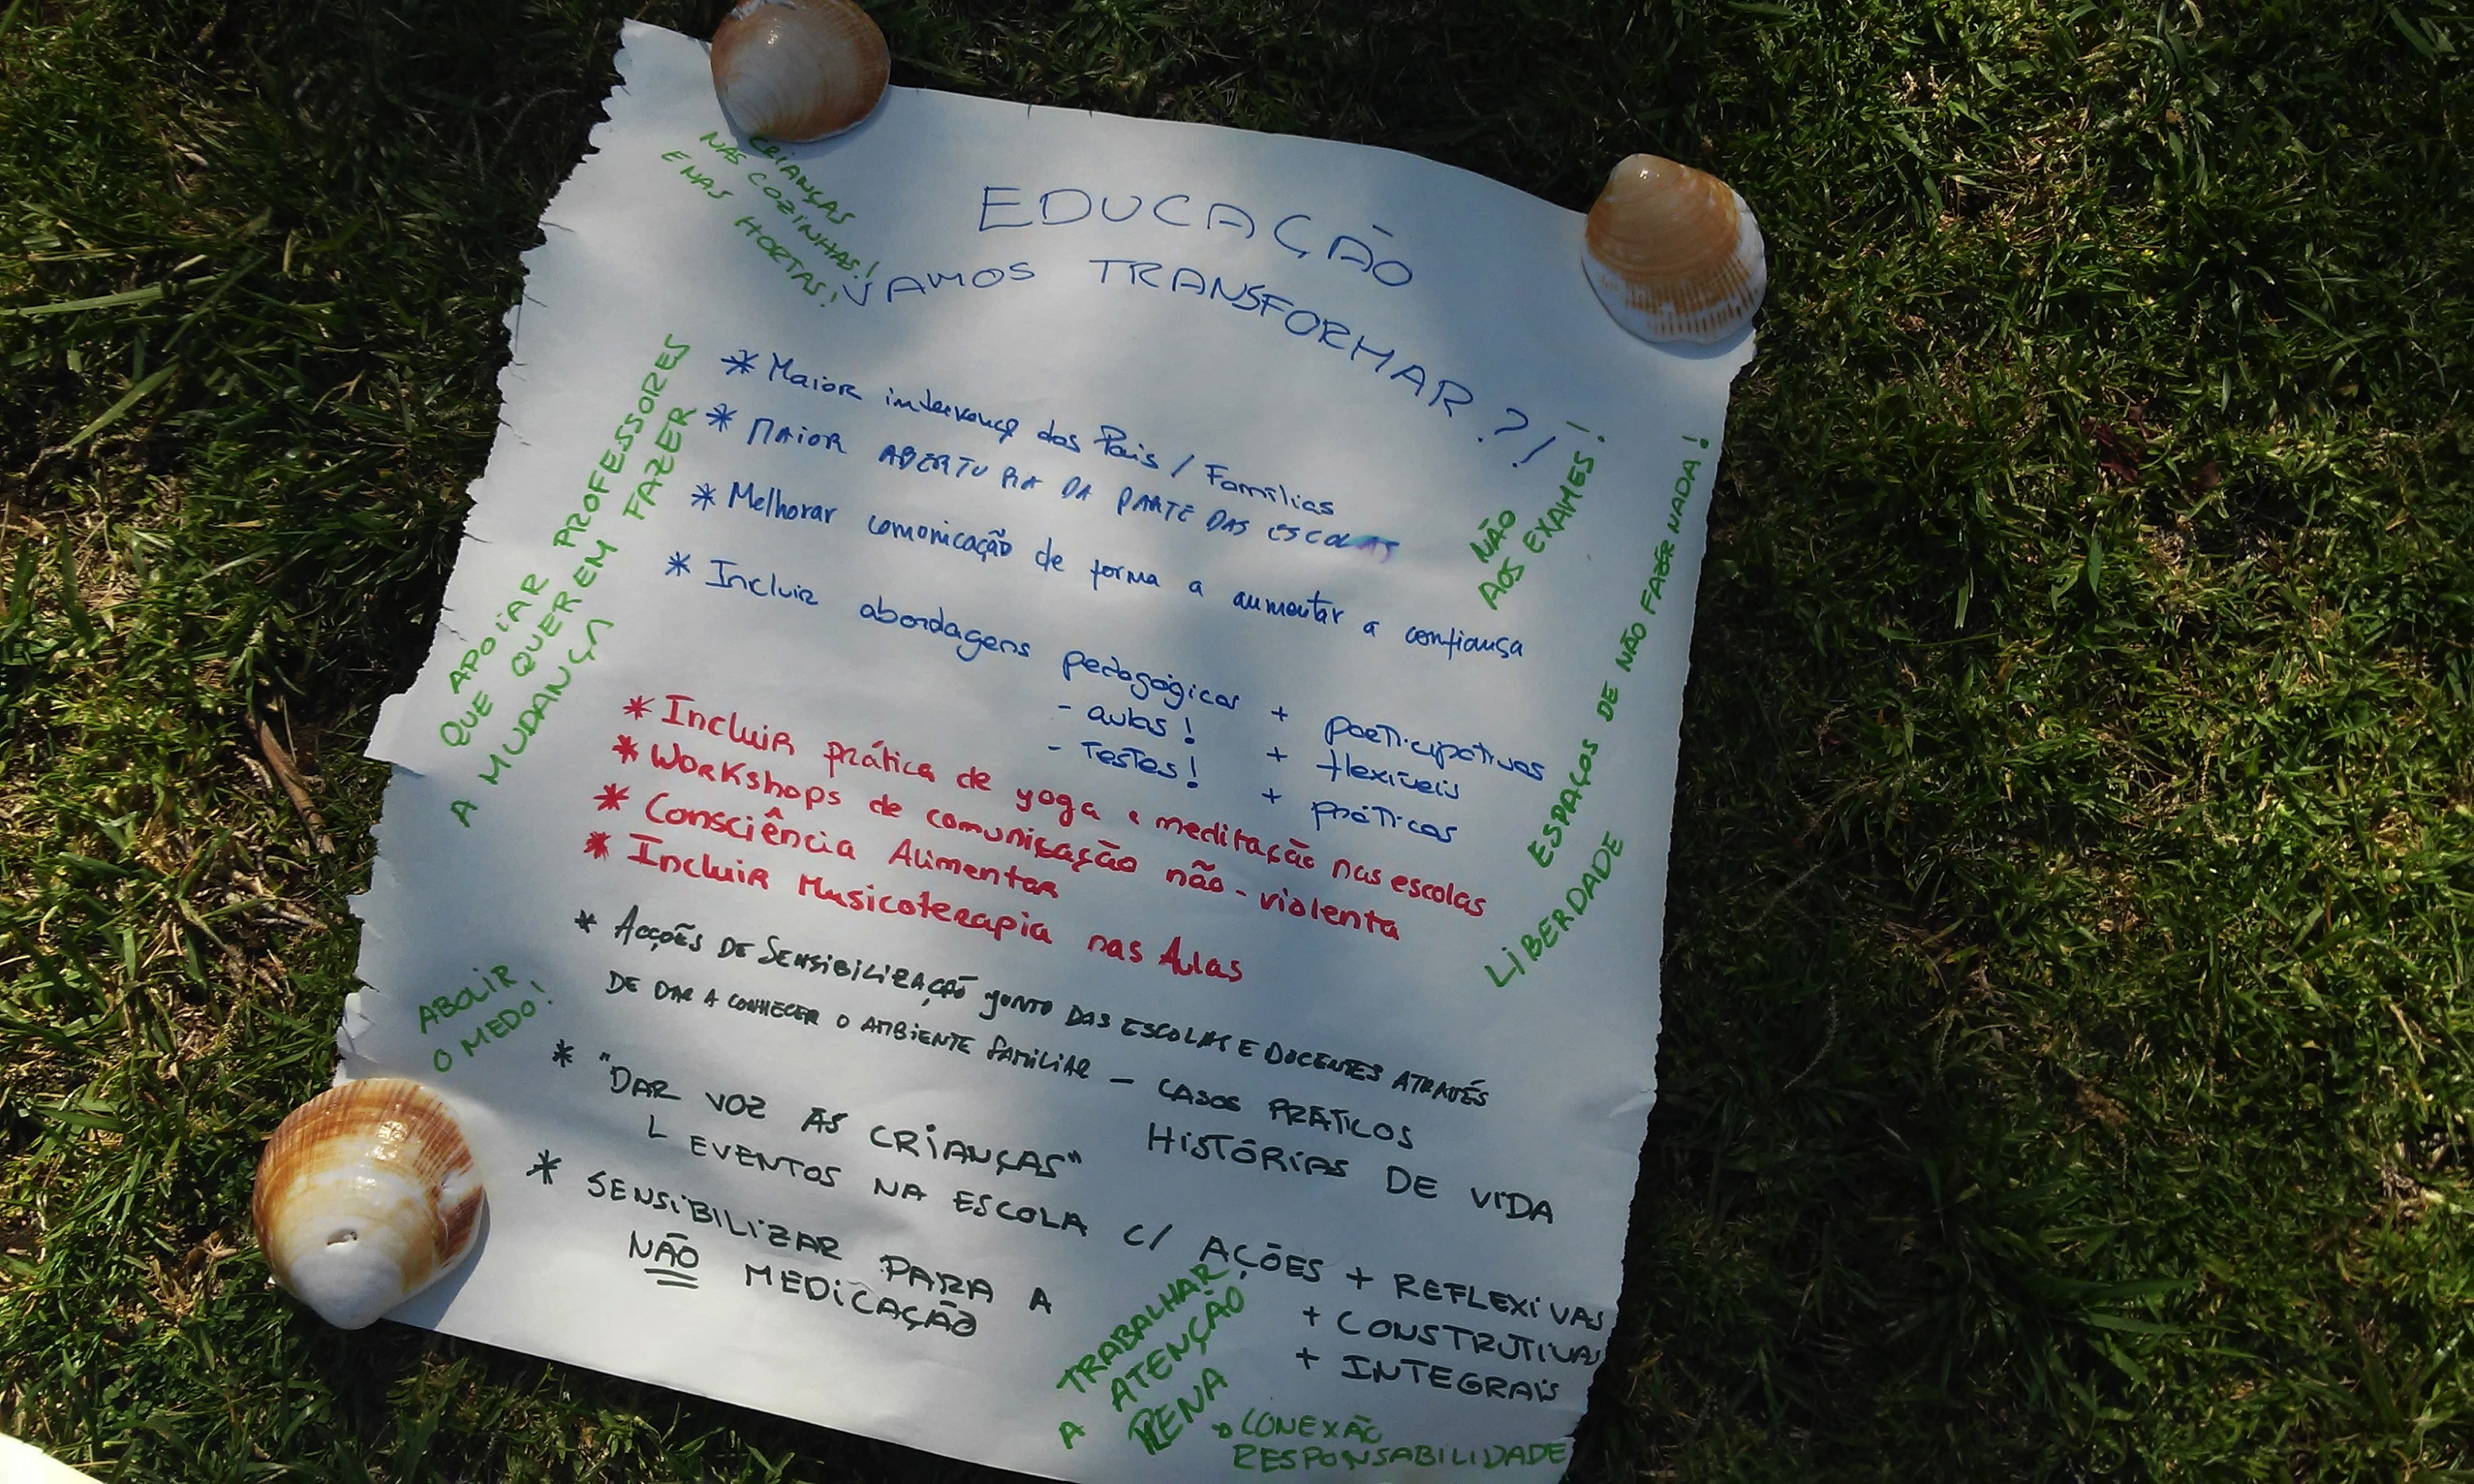 CRIANÇAS
NAS COZINHAS!
E NAS HORTAS!
EDUCAÇÃO
VAMOS TRANSFORMAR?!
* Maior dos Pais / Famílias
* MAIOR ABERTURA DA PARTE DAS ESCOLAS
* Melhorar comonicação de forma a aumentar a confiança
* Incluir abordagens pedagógicas + participativas
- aulas! + flexíveis
- Testes! + práticas
* Incluir prática de yoga e meditação nas escolas
* Workshops de comunicação não-violenta
* Consciência Alimentar
* Incluir Musicoterapia nas Aulas
* Acções DE SENSIBILIZAÇÃO JUNTO DAS ESCOLAS E DOCENTES ATRAVÉS
DE DAR A CONHECER O AMBIENTE FAMILIAR — CASOS PRÁTICOS
HISTÓRIAS DE VIDA
* "DAR VOZ AS CRIANÇAS"
L EVENTOS NA ESCOLA C/ AÇÕES + REFLEXIVAS
+ CONSTRUTIVAS
+ INTEGRAIS
* SENSIBILIZAR PARA A
NÃO MEDICAÇÃO
APOIAR PROFESSORES
QUE QUEREM FAZER
A MUDANÇA
ABOLIR
O MEDO!
NÃO
AOS EXAMES!
ESPAÇOS DE NÃO FAZER NADA!
LIBERDADE
TRABALHAR
A ATENÇÃO
PLENA
CONEXÃO
RESPONSABILIDADE